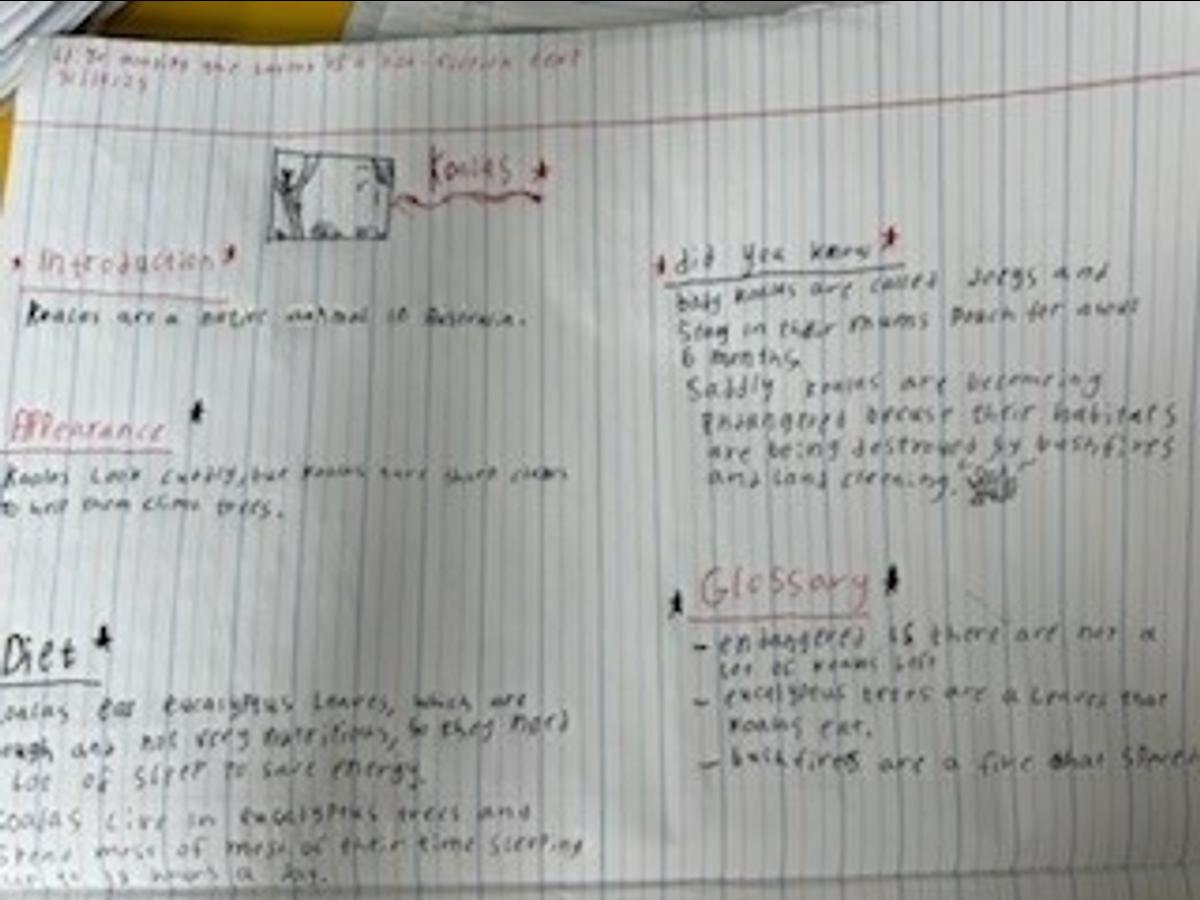 Koalas
Introduction
Koalas are a native animal to
Appearance
Koalas look cuddly, but koalas have sharp claws
to help them climb trees.
Diet
eat eucalyptus leaves, which are
and not very nutritious, so they need
lot of sleep to save energy.
live in eucalyptus trees and
spend most of most of their time sleeping
hours a day.
did you know
baby koalas are called Joeys and
Stay in their mums pouch for about
6 months
Saddly koalas are becomeing
Endangered becuse their habitats
are being destroyed by bushfires
and land
Glossary
- endangered is there are not a
lot of koalas left
- eucalyptus trees are a leaves that
koalas eat.
- bushfires are a fire that